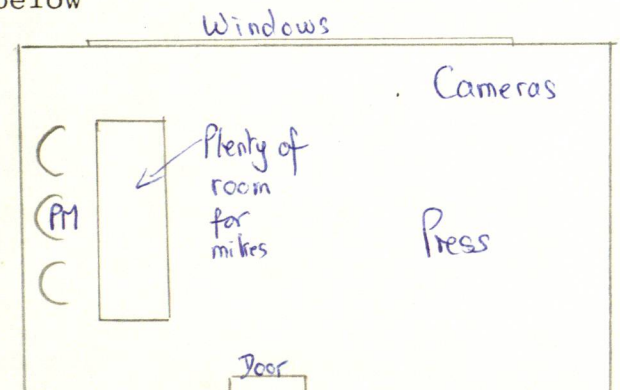 below
Windows
Cameras
Plenty of
room
for
mikes
PM
Press
Door